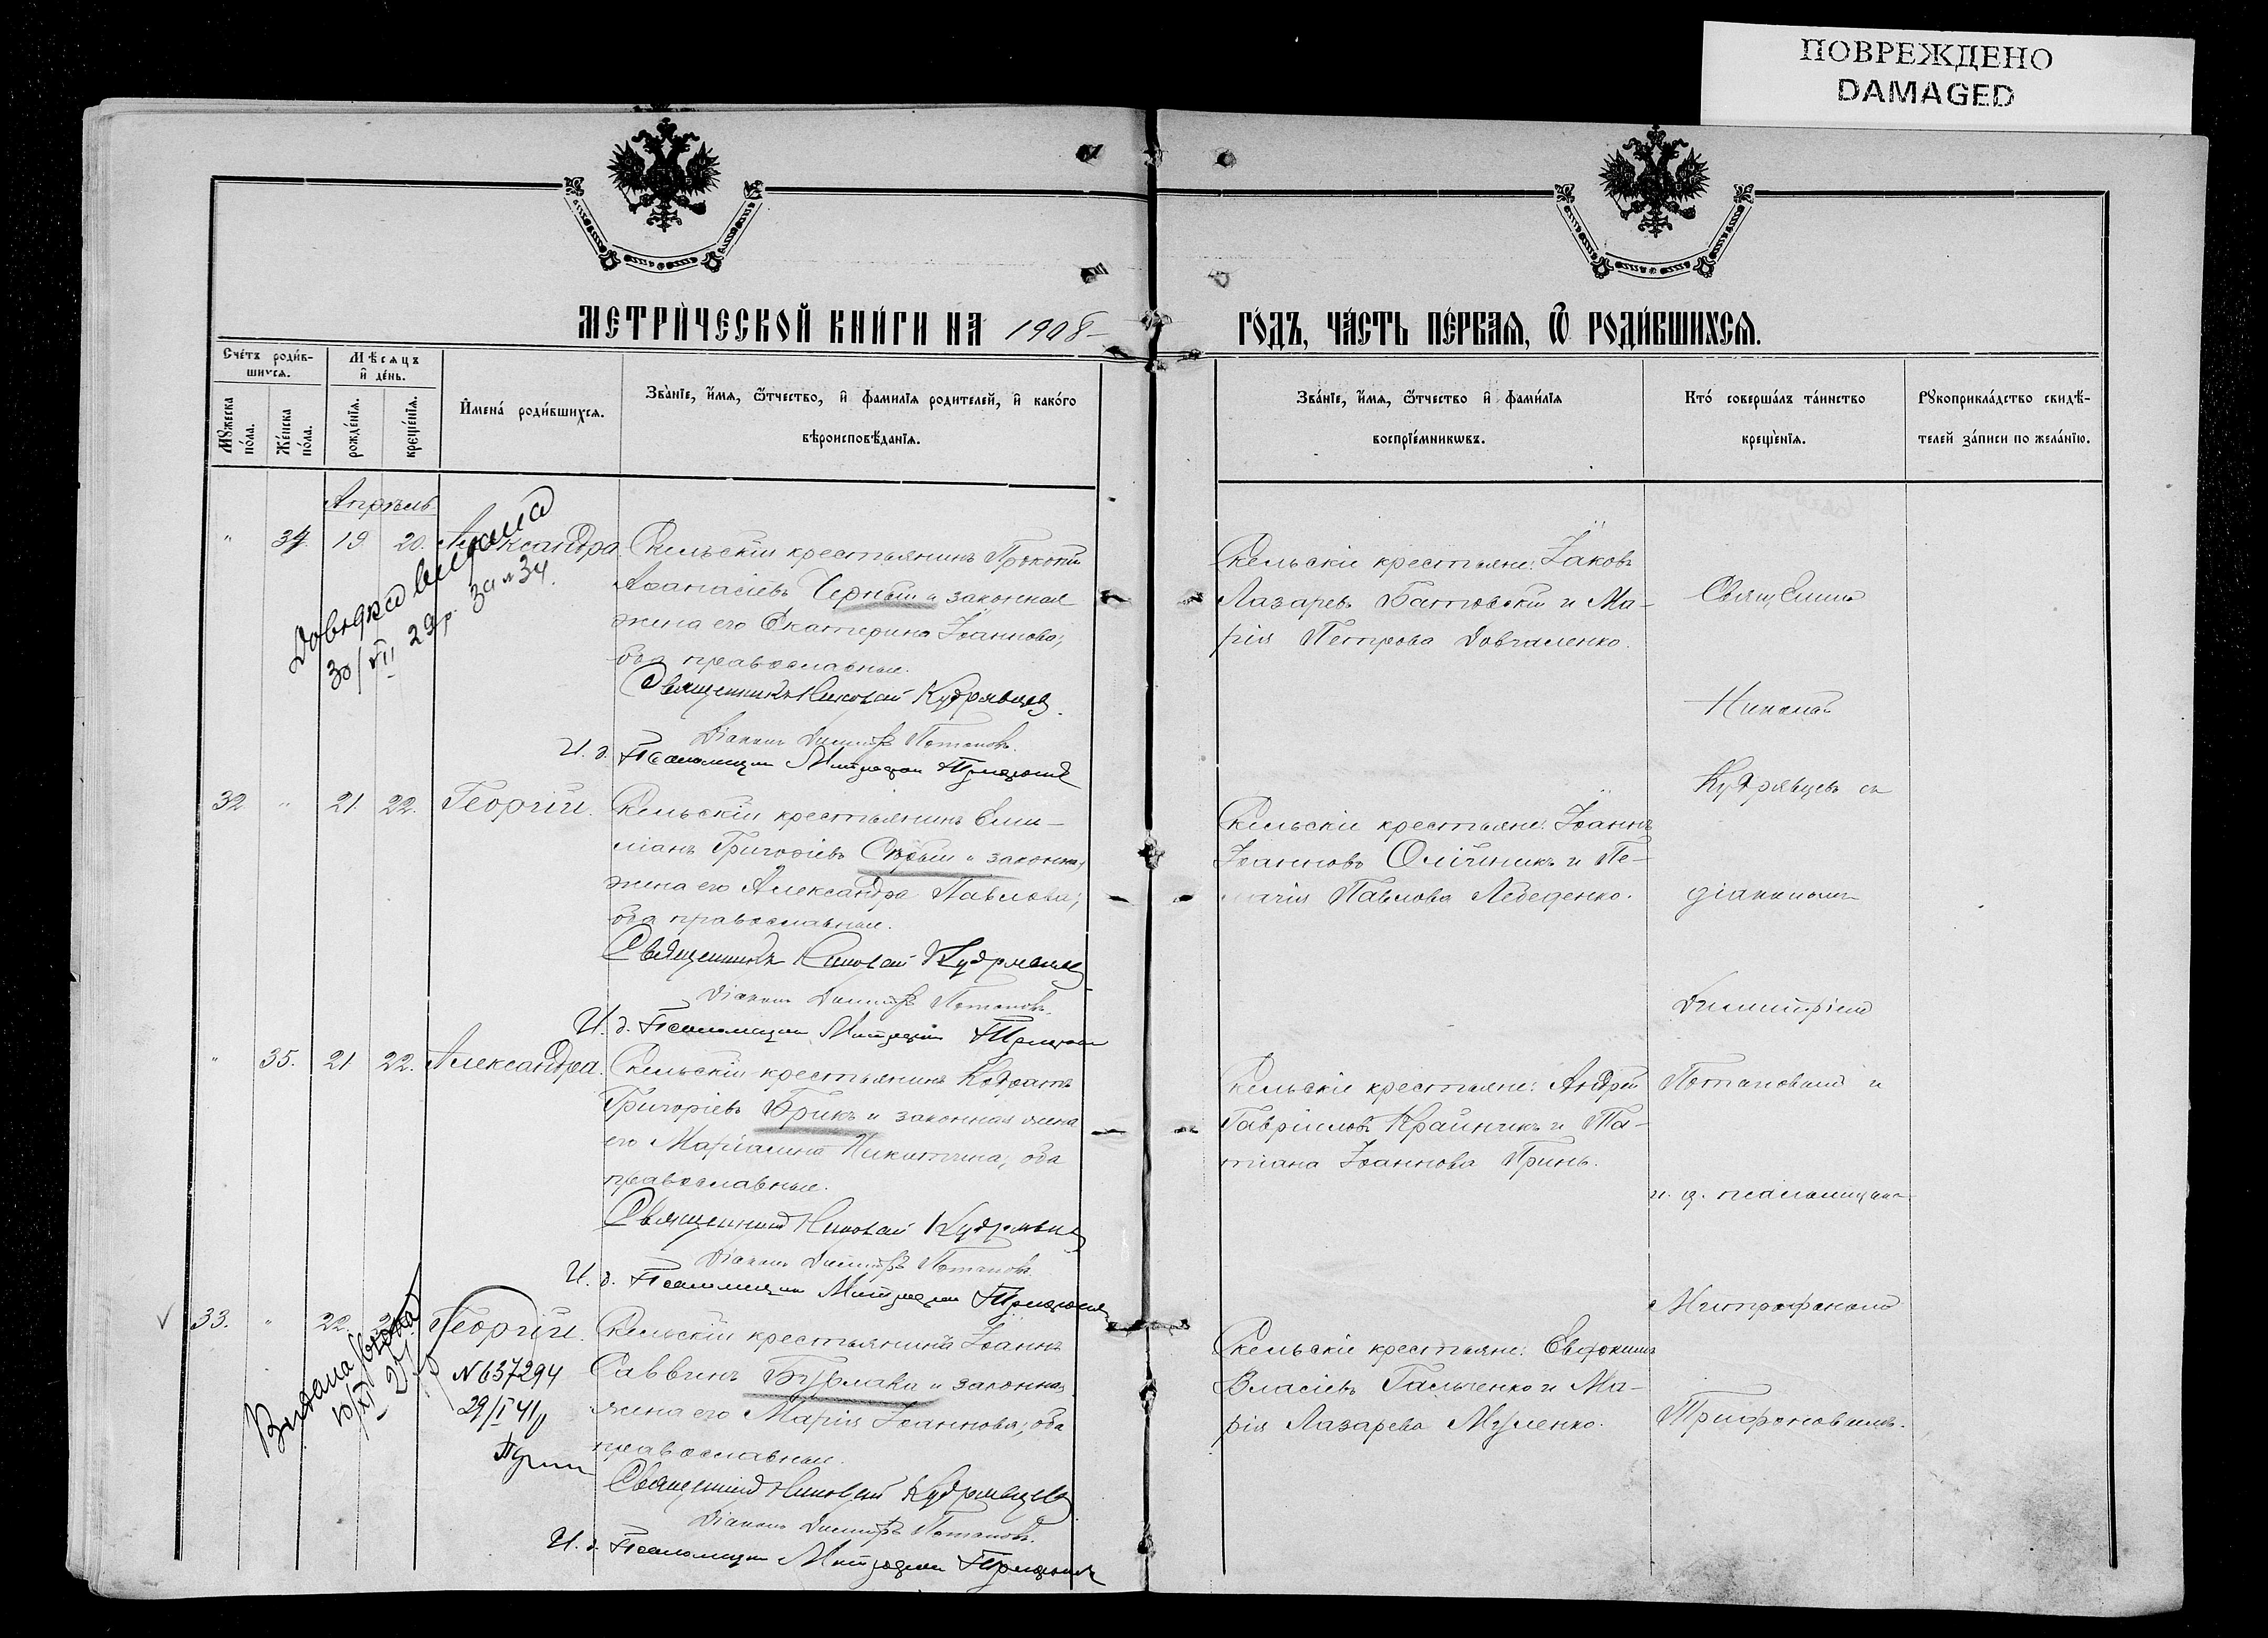 ПОВРЕЖДЕНО
DAMAGED
МЕТРИ́ЧЕСКОЙ КНИ́ГИ НА 1908
ГО́ДЪ, ЧА́СТЬ ПЕ́РВАЯ, Ѽ РОДИ́ВШИХСЯ.
Сче́тъ роди́в-
шихся.
Мѣсяцъ
и҆ де́нь.
Мꙋжеска по́ла.
Же́нска по́ла.
рожде́нїя.
креще́нїя.
И҆мена̀ роди́вшихся.
Зва̀нїе, и҆́мя, ѻ҆́тчество, и҆ фами́лїя родителей, и҆ како́гѡ
вѣроисповѣ́данїя.
Зва́нїе, и҆́мя, ѻ҆́тчество и҆ фами́лїя
воспрїе́мникѡвъ.
Кто̀ соверша́лъ та́инство
креще́нїя.
Рꙋкоприкла́дство свидѣ́-
телей за́писи по жела́нїю.
Апрѣль
" 34. 19 20. Александра.
Скельскій крестьянинъ Прокопій
Аѳанасіевъ Черный и законная
жена его Екатерина Іоаннова,
оба православные.
Священникъ Николай Кудрявцев.
Діаконъ Димитрій Потаповъ.
И. д. Псаломщика Митрофан
Скельскіе крестьяне: Іаковъ
Лазаревъ Батовскій и Ма-
рія Петрова Довгаленко.
Довідка видана
30/VII 29р. за № 34.
32 " 21. 22. Георгій.
Скельскій крестьянинъ Еми-
ліанъ Григоріевъ и законная
жена его Александра Павлова,
оба православные.
Священникъ Николай Кудрявцев
Діаконъ Димитрій Потаповъ.
И. д. Псаломщика Митрофан
Скельскіе крестьяне: Іоаннъ
Іоанновъ Олійникъ и Пе-
лагія Павлова Лебеденко.
" 35. 21 22. Александра.
Скельскій крестьянинъ Кодратъ
Григоріевъ Брикъ и законная жена
его Маріамна Никитина, оба
православные.
Священник Николай Кудрявцев
Діаконъ Димитрій Потаповъ
И. д. Псаломщика Митрофан
Скельскіе крестьяне: Андрей
Гавріиловъ Крайникъ и Та-
тіана Іоаннова Гринь.
√ 33. " 22. Георгій.
Скельскій крестьянинъ Іоаннъ
Саввинъ Бурлака и законная
жена его Марія Іоаннова, оба
православные.
Священник Николай Кудрявцев
Діаконъ Димитрій Потаповъ.
И. д. Псаломщика Митрофан
Скельскіе крестьяне: Евфимій
Власіевъ Гальченко и Ма-
рія Лазарева Муленко.
Видана
10/XI
N 637294
29/I 41
Свящ
Николай
Кудрявцевъ съ
діакономъ
Димитріем
Потаповымъ и
и. д. псаломщика
Митрофаномъ
Трифоновымъ.